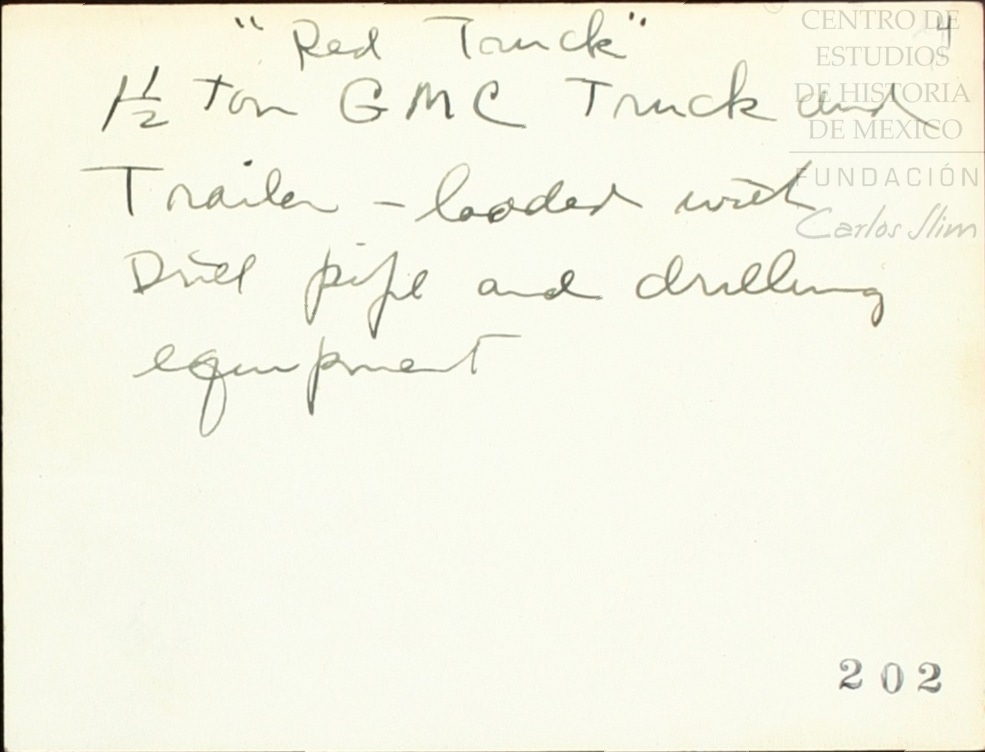 "Red Truck"
4
1 1/2 ton GMC Truck and
Trailer - loaded with
Drill pipe and drilling
equipment
202
CENTRO DE
ESTUDIOS
DE HISTORIA
DE MEXICO
FUNDACIÓN
Carlos Slim